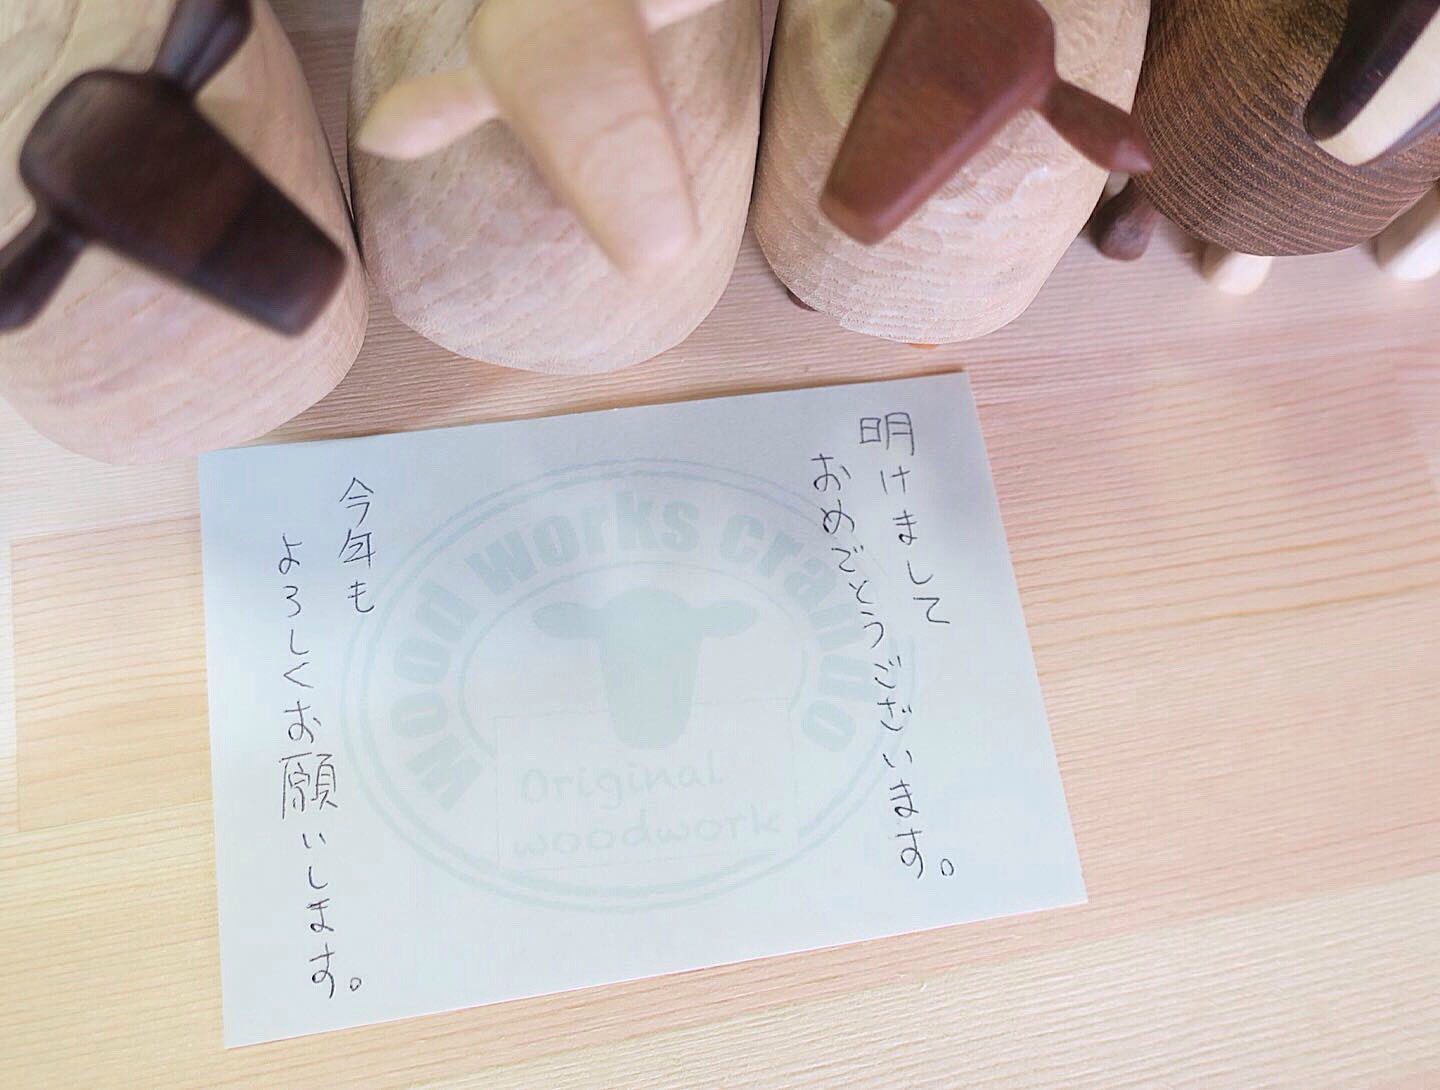 明けまして
おめでとうございます。
今年も
よろしくお願いします。
wood works craindo
Original
woodwork